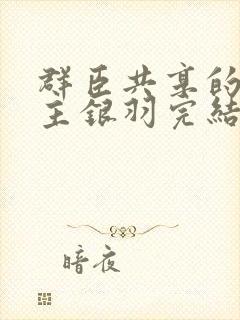 群臣共享的
主銀羽完結
暗夜